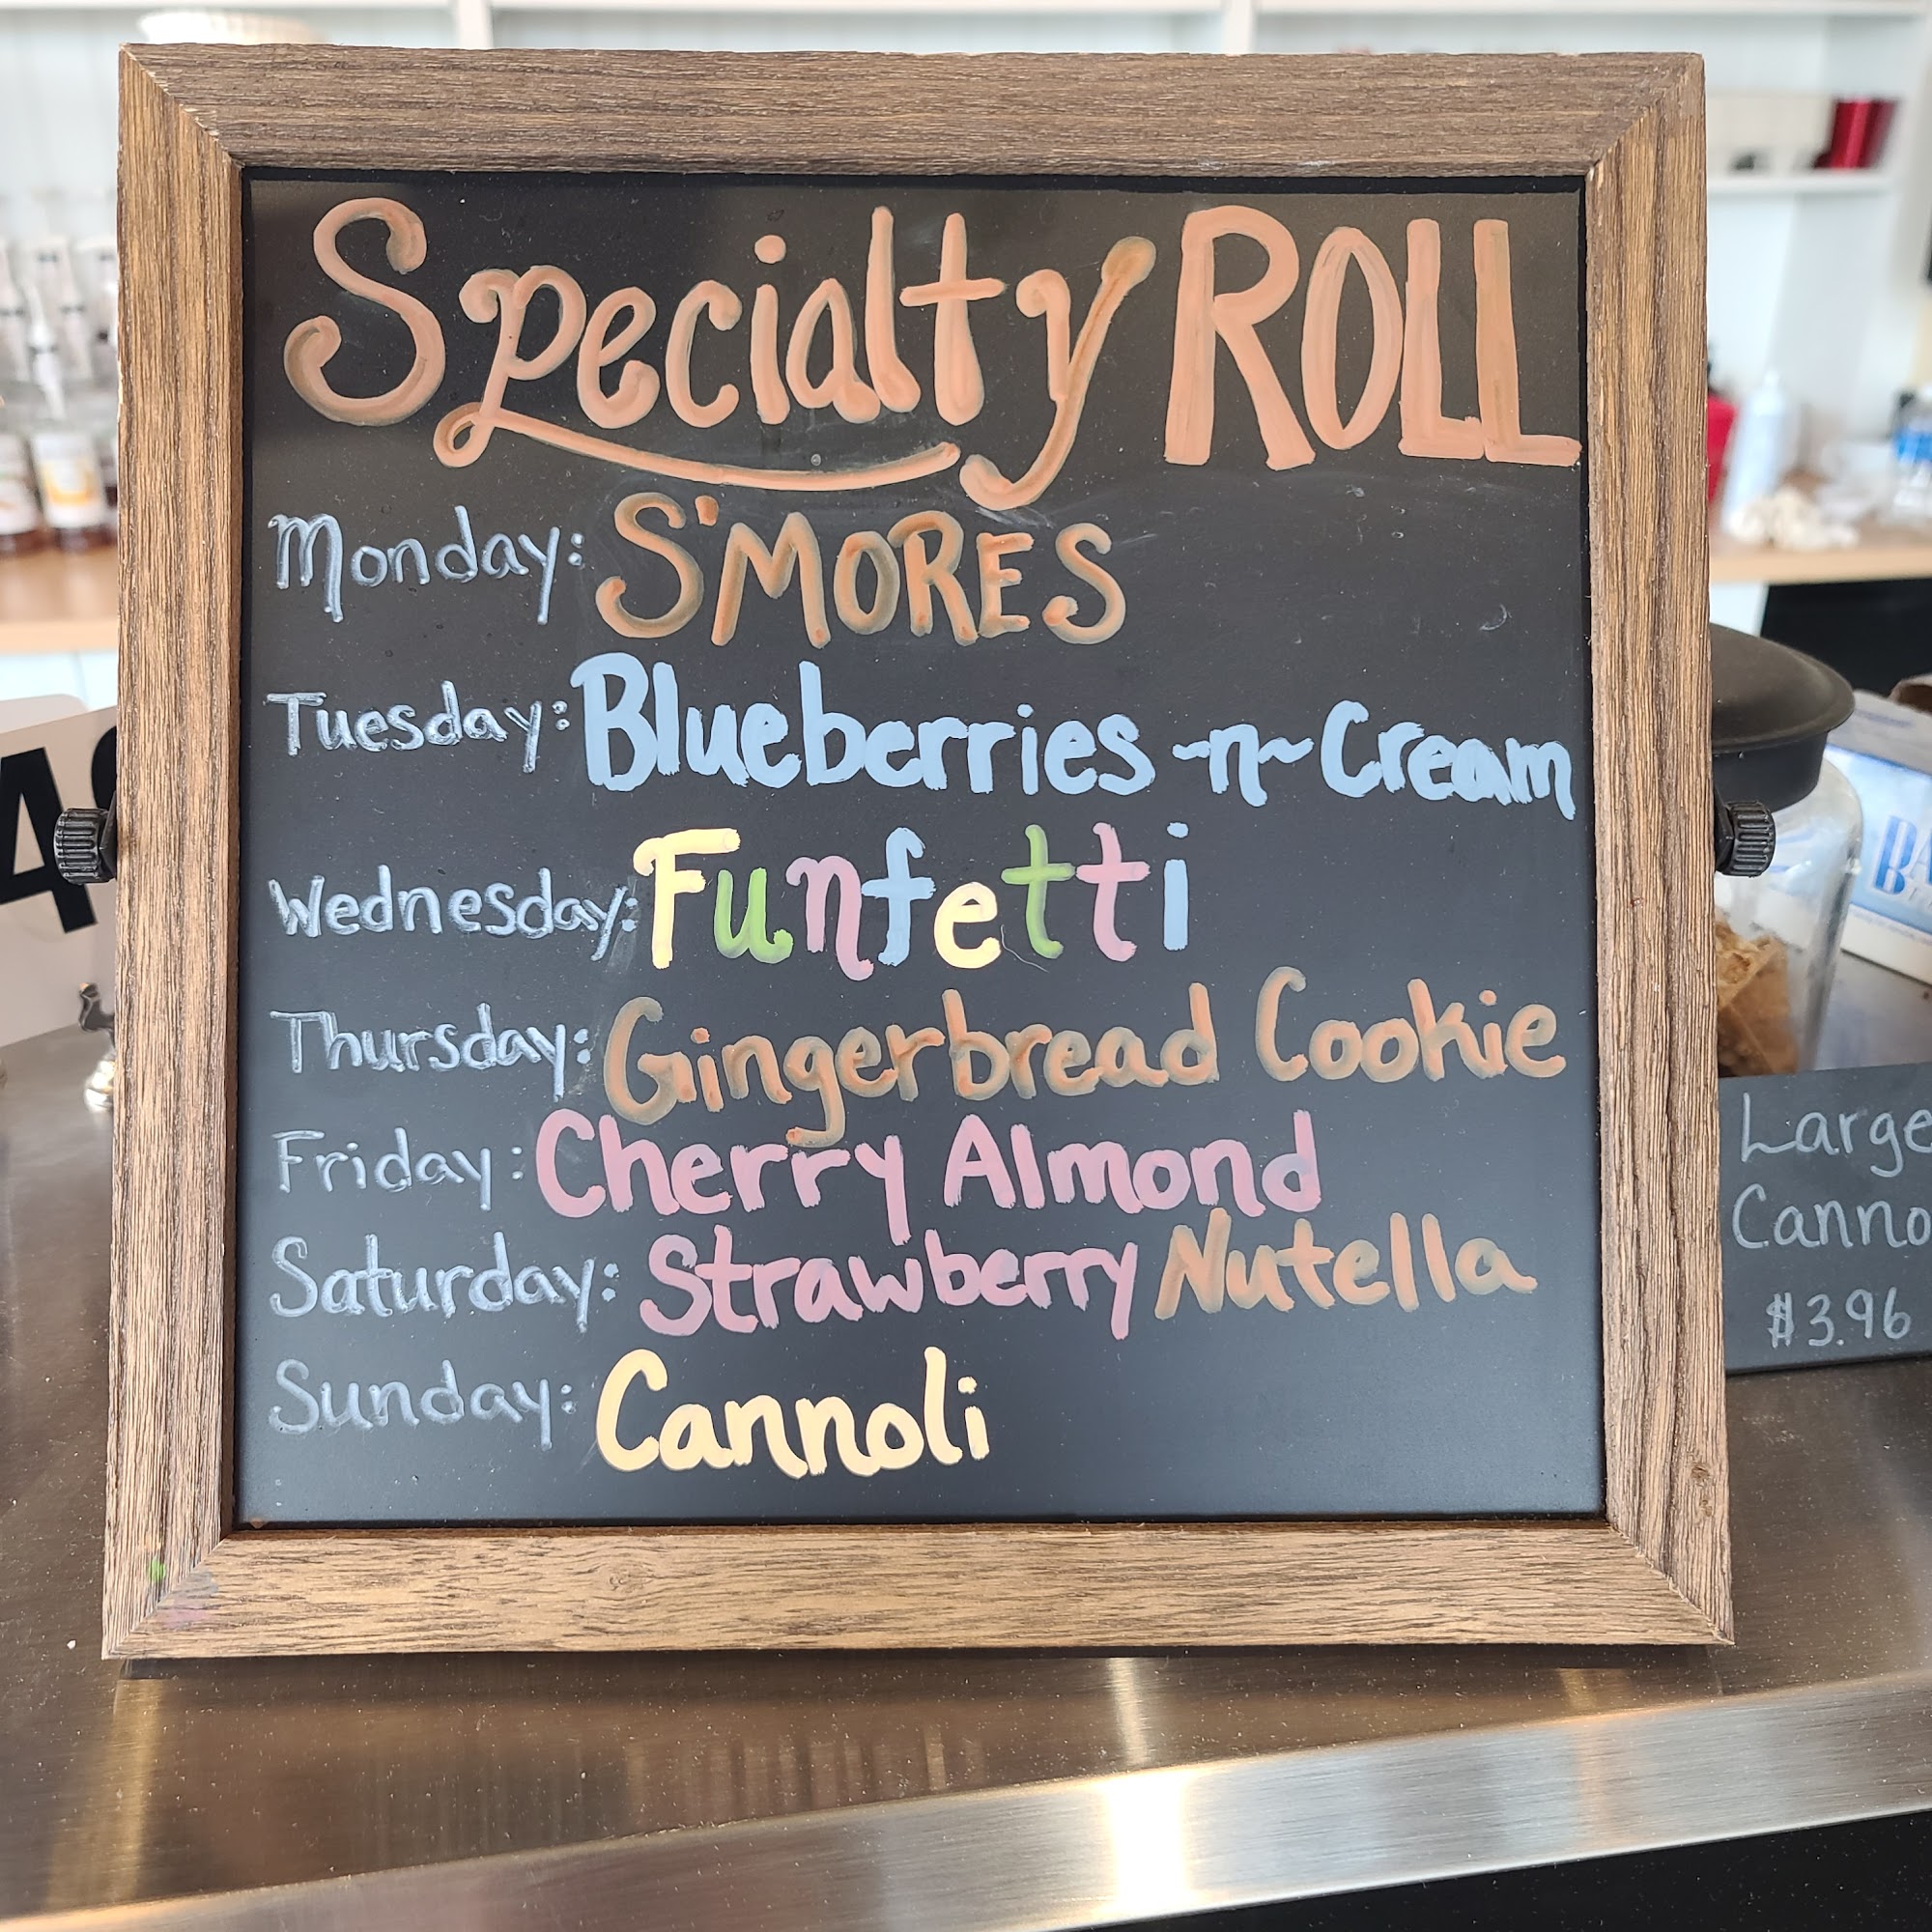 Specialty ROLL
Monday: S'MORES
Tuesday: Blueberries -n- Cream
Wednesday: Funfetti
Thursday: Gingerbread Cookie
Friday: Cherry Almond
Saturday: Strawberry Nutella
Sunday: Cannoli
Large
$3.96